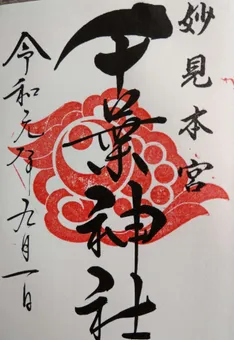 妙見本宮
千葉神社
令和元年 九月一日